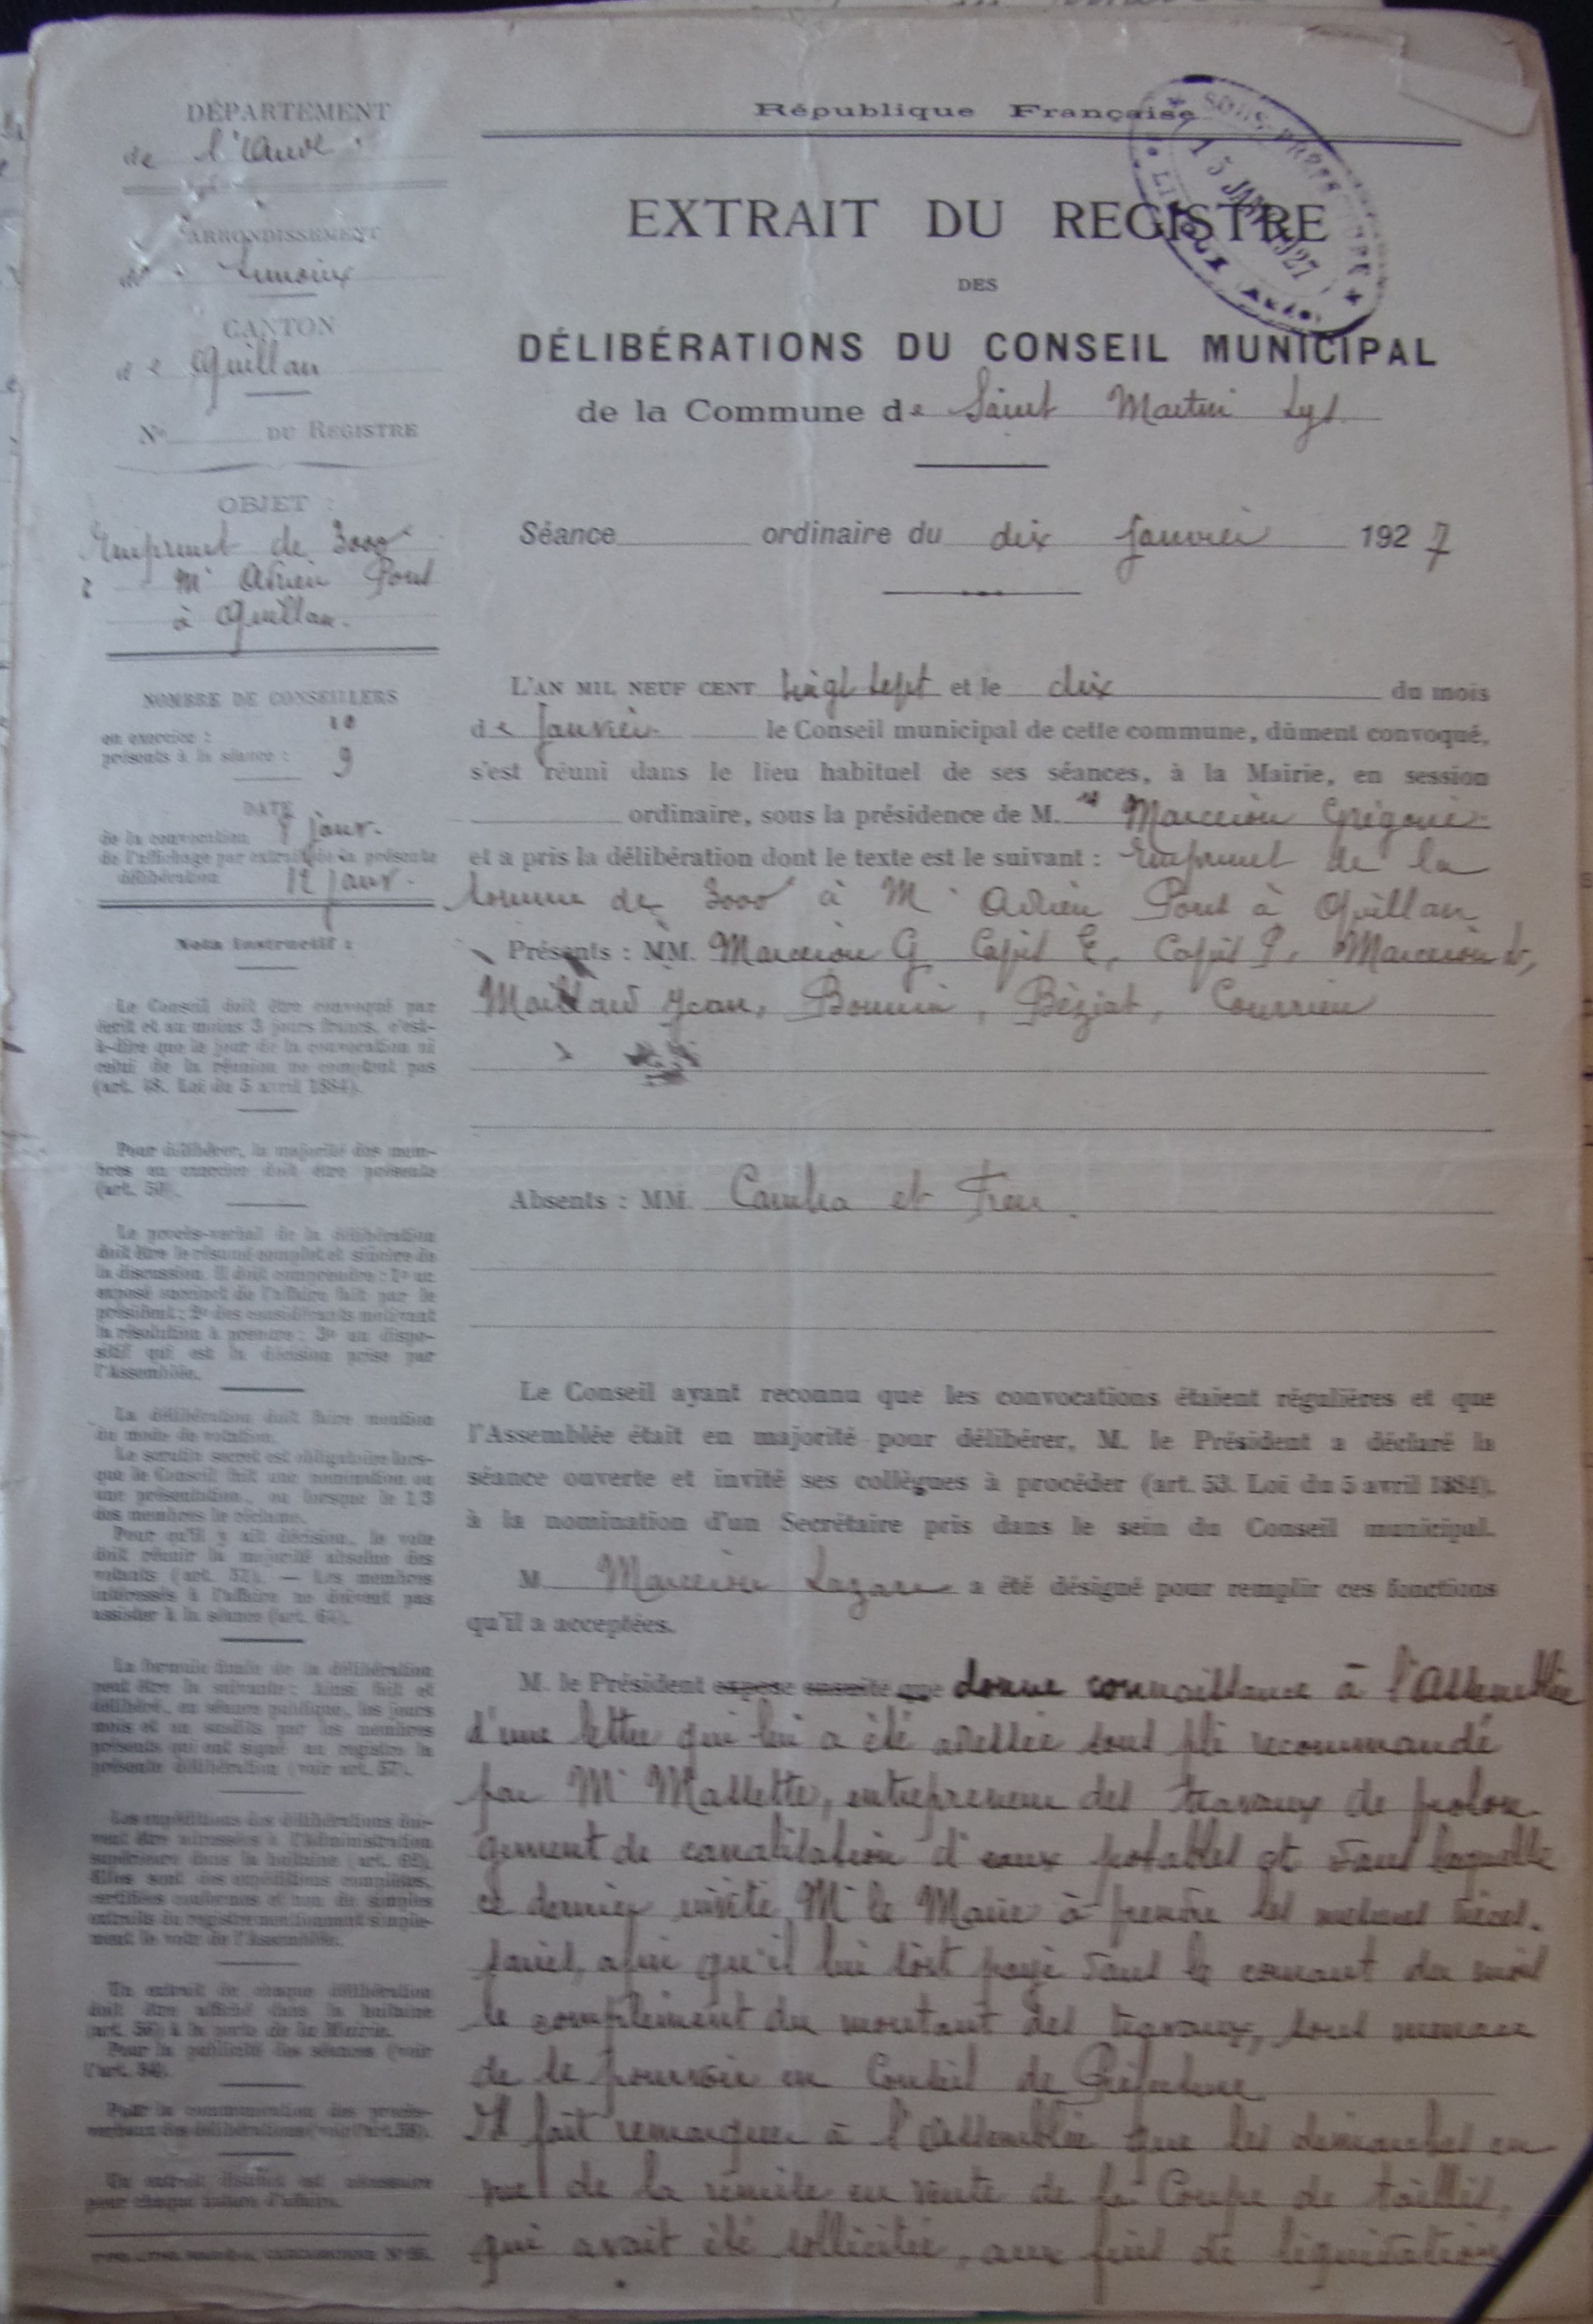 DÉPARTEMENT
de l'Aude
ARRONDISSEMENT
de Limoux
CANTON
de Quillan
No DU REGISTRE
OBJET :
Emprunt de 3000f
à Mr Adrien Pont
à Quillan.
NOMBRE DE CONSEILLERS
en exercice : 10
présents à la séance : 9
DATE
de la convocation 8 janr.
de l'affichage par extrait de la présente
délibération 12 janr.
Nota Instructif :
Le Conseil doit être convoqué par
écrit et au moins 3 jours francs, c'est-
à-dire que le jour de la convocation ni
celui de la réunion ne comptent pas
(art. 48. Loi du 5 avril 1884).
Pour délibérer, la majorité des mem-
bres en exercice doit être présente
(art. 50).
Le procès-verbal de la délibération
doit être le résumé complet et sincère de
la discussion. Il doit comprendre : 1o un
exposé succinct de l'affaire fait par le
président; 2o des considérants motivant
la résolution à prendre; 3o un dispo-
sitif qui est la décision prise par
l'Assemblée.
La délibération doit faire mention
du mode de votation.
Le scrutin secret est obligatoire lors-
que le Conseil fait une nomination ou
une présentation, ou lorsque le 1/3
des membres le réclame.
Pour qu'il y ait décision, le vote
doit réunir la majorité absolue des
votants (art. 51). — Les membres
intéressés à l'affaire ne doivent pas
assister à la séance (art. 64).
La formule finale de la délibération
peut être la suivante : Ainsi fait et
délibéré, en séance publique, les jours
mois et an susdits par les membres
présents qui ont signé au registre la
présente délibération (voir art. 57).
Les expéditions des délibérations doi-
vent être adressées à l'Administration
supérieure dans la huitaine (art. 62).
Elles sont des expéditions complètes,
certifiées conformes et non de simples
extraits du registre mentionnant simple-
ment le vote de l'Assemblée.
Un extrait de chaque délibération
doit être affiché dans la huitaine
(art. 56) à la porte de la Mairie.
Pour la publicité des séances (voir
l'art. 54).
Pour la communication des procès-
verbaux des délibérations (voir l'art. 58).
Un extrait distinct est nécessaire
pour chaque nature d'affaire.
République Française
SOUS-PRÉFECTURE
15 JANV 1927
de LIMOUX (AUDE)
EXTRAIT DU REGISTRE
DES
DÉLIBÉRATIONS DU CONSEIL MUNICIPAL
de la Commune de Saint Martin Lys
Séance ordinaire du dix Janvier 1927
L'AN MIL NEUF CENT vingt sept et le dix du mois
de Janvier le Conseil municipal de cette commune, dûment convoqué,
s'est réuni dans le lieu habituel de ses séances, à la Mairie, en session
ordinaire, sous la présidence de M. Marcerou Grégoire
et a pris la délibération dont le texte est le suivant : Emprunt de la
somme de 3000f à Mr Adrien Pont à Quillan
Présents : MM. Marcerou G Capit E, Capit P, Marcerou L,
Maillard Jean, Bounin, Béziat, Courrieu
Absents : MM. et
Le Conseil ayant reconnu que les convocations étaient régulières et que
l'Assemblée était en majorité pour délibérer, M. le Président a déclaré la
séance ouverte et invité ses collègues à procéder (art. 53. Loi du 5 avril 1884),
à la nomination d'un Secrétaire pris dans le sein du Conseil municipal.
M. Marcerou Lazare a été désigné pour remplir ces fonctions
qu'il a acceptées.
M. le Président expose ensuite que donne connaissance à l'Assemblée
d'une lettre qui lui a été adressée sous pli recommandé
par Mr Massette, entrepreneur des travaux de prolon-
gement de canalisation d'eaux potables et dans laquelle
ce dernier invite Mr le Maire à prendre les mesures néces-
saires, afin qu'il lui soit payé dans le courant du mois
le complément du montant des travaux, sous menace
de se pourvoir en Conseil de Préfecture
Il fait remarquer à l'Assemblée que les démarches en
vue de la remise en vente de la Coupe de taillis,
qui avait été sollicitée, aux fins de liquidation